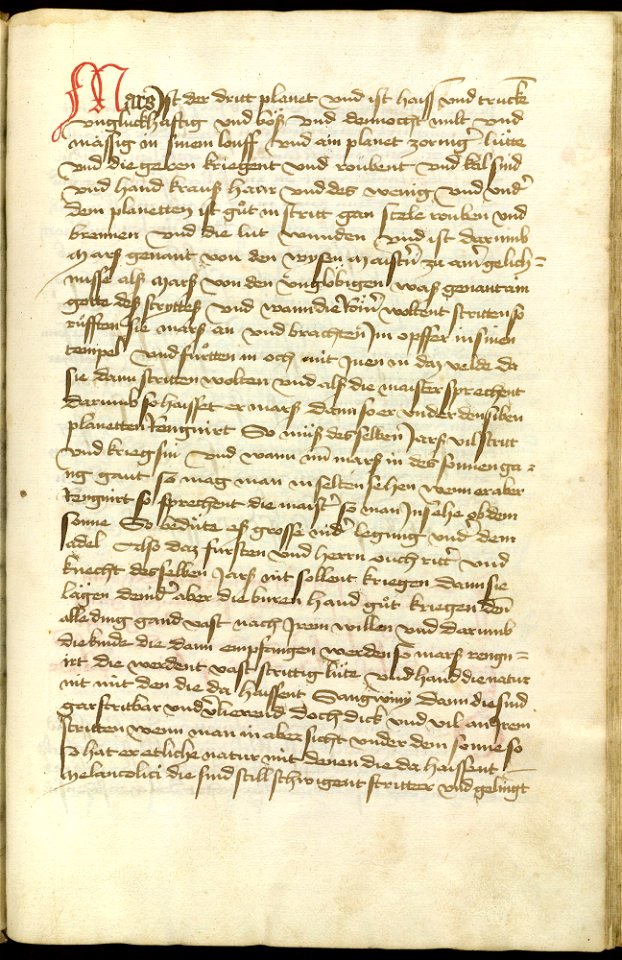 Mars ist der dritt planet vnd ist haiss vnd trucke
vngluckhafftig vnd böß vnd dennocht milt vnd
mässig in sinem louff vnd ain planet zornig lütte
vnd die geren kriegent vnd roubent vnd kal sind
vnd hand kraus haar vnd des wenig vnd vnd
dem planetten ist gůt in stritt gan stele rouben vnd
brennen vnd die lut wunden vnd ist darumb
Mars genant von den wysen maistr zu ainr gelich=
nusse als Mars von den vnglöbigen was genant ain
gotte des stryttes vnd wann die Römr woltent stritten so
rüfften sie mars an vnd brachten Im opffer in sinen
tempel vnd fůrtten in och mit Inen in daz velde da
sie dann stritten wolten vnd als die maister sprechent
darumb so haisset er mars dann so er vnder den siben
planetten Rengnirt So můß des selben Jars vil stritt
vnd krieg sin vnd wann nun mars in des sonnen ga=
ng gant so mag man in selten sehen wenn er aber
Rengnirt so sprechent die maistr so man In sehe ob dem
sonne So bedüte es grosse nidr legung vndr dem
adel Also daz fursten vnd herrn ouch rittr vnd
knecht desselben Jars nit sollent kriegen dann sie
lägen dernidr aber die buren hand gůt kriegen den
alle ding gand vast nach Irem willen vnd darumb
die kinde die dann empfangen werden so mars rengn=
irt die werdent vast strittig lüte vnd hand die natur
nit mit den die da haissent Sangwinj dann die sind
gar stritbar vnd verlierend doch dick vnd vil an irem
stritten wenn man in aber sicht vnder dem sonne so
hat er etliche natur mit denen die da haissent
Melancolici die sind still schwigent stritter vnd gelingt